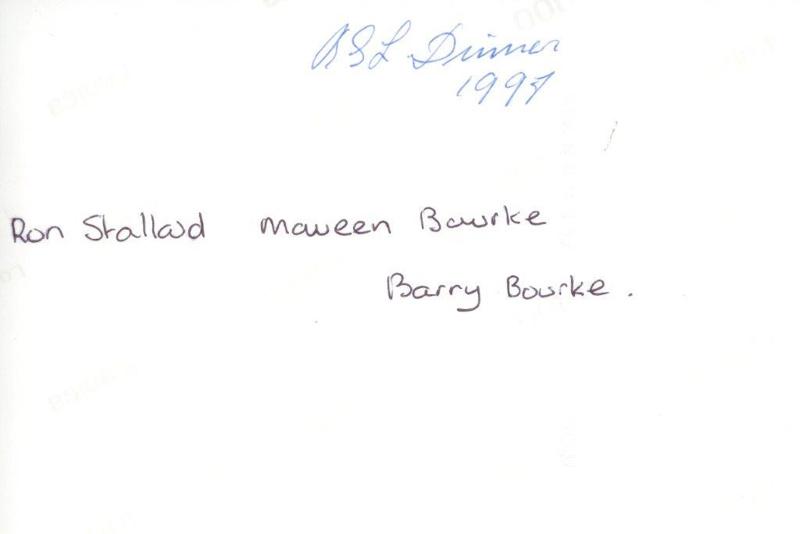 RSL Dinner
1997
Ron Stallard Maureen Bourke
Barry Bourke.